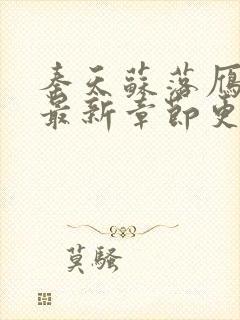 秦天蘇落雁
最新章節更
莫騷